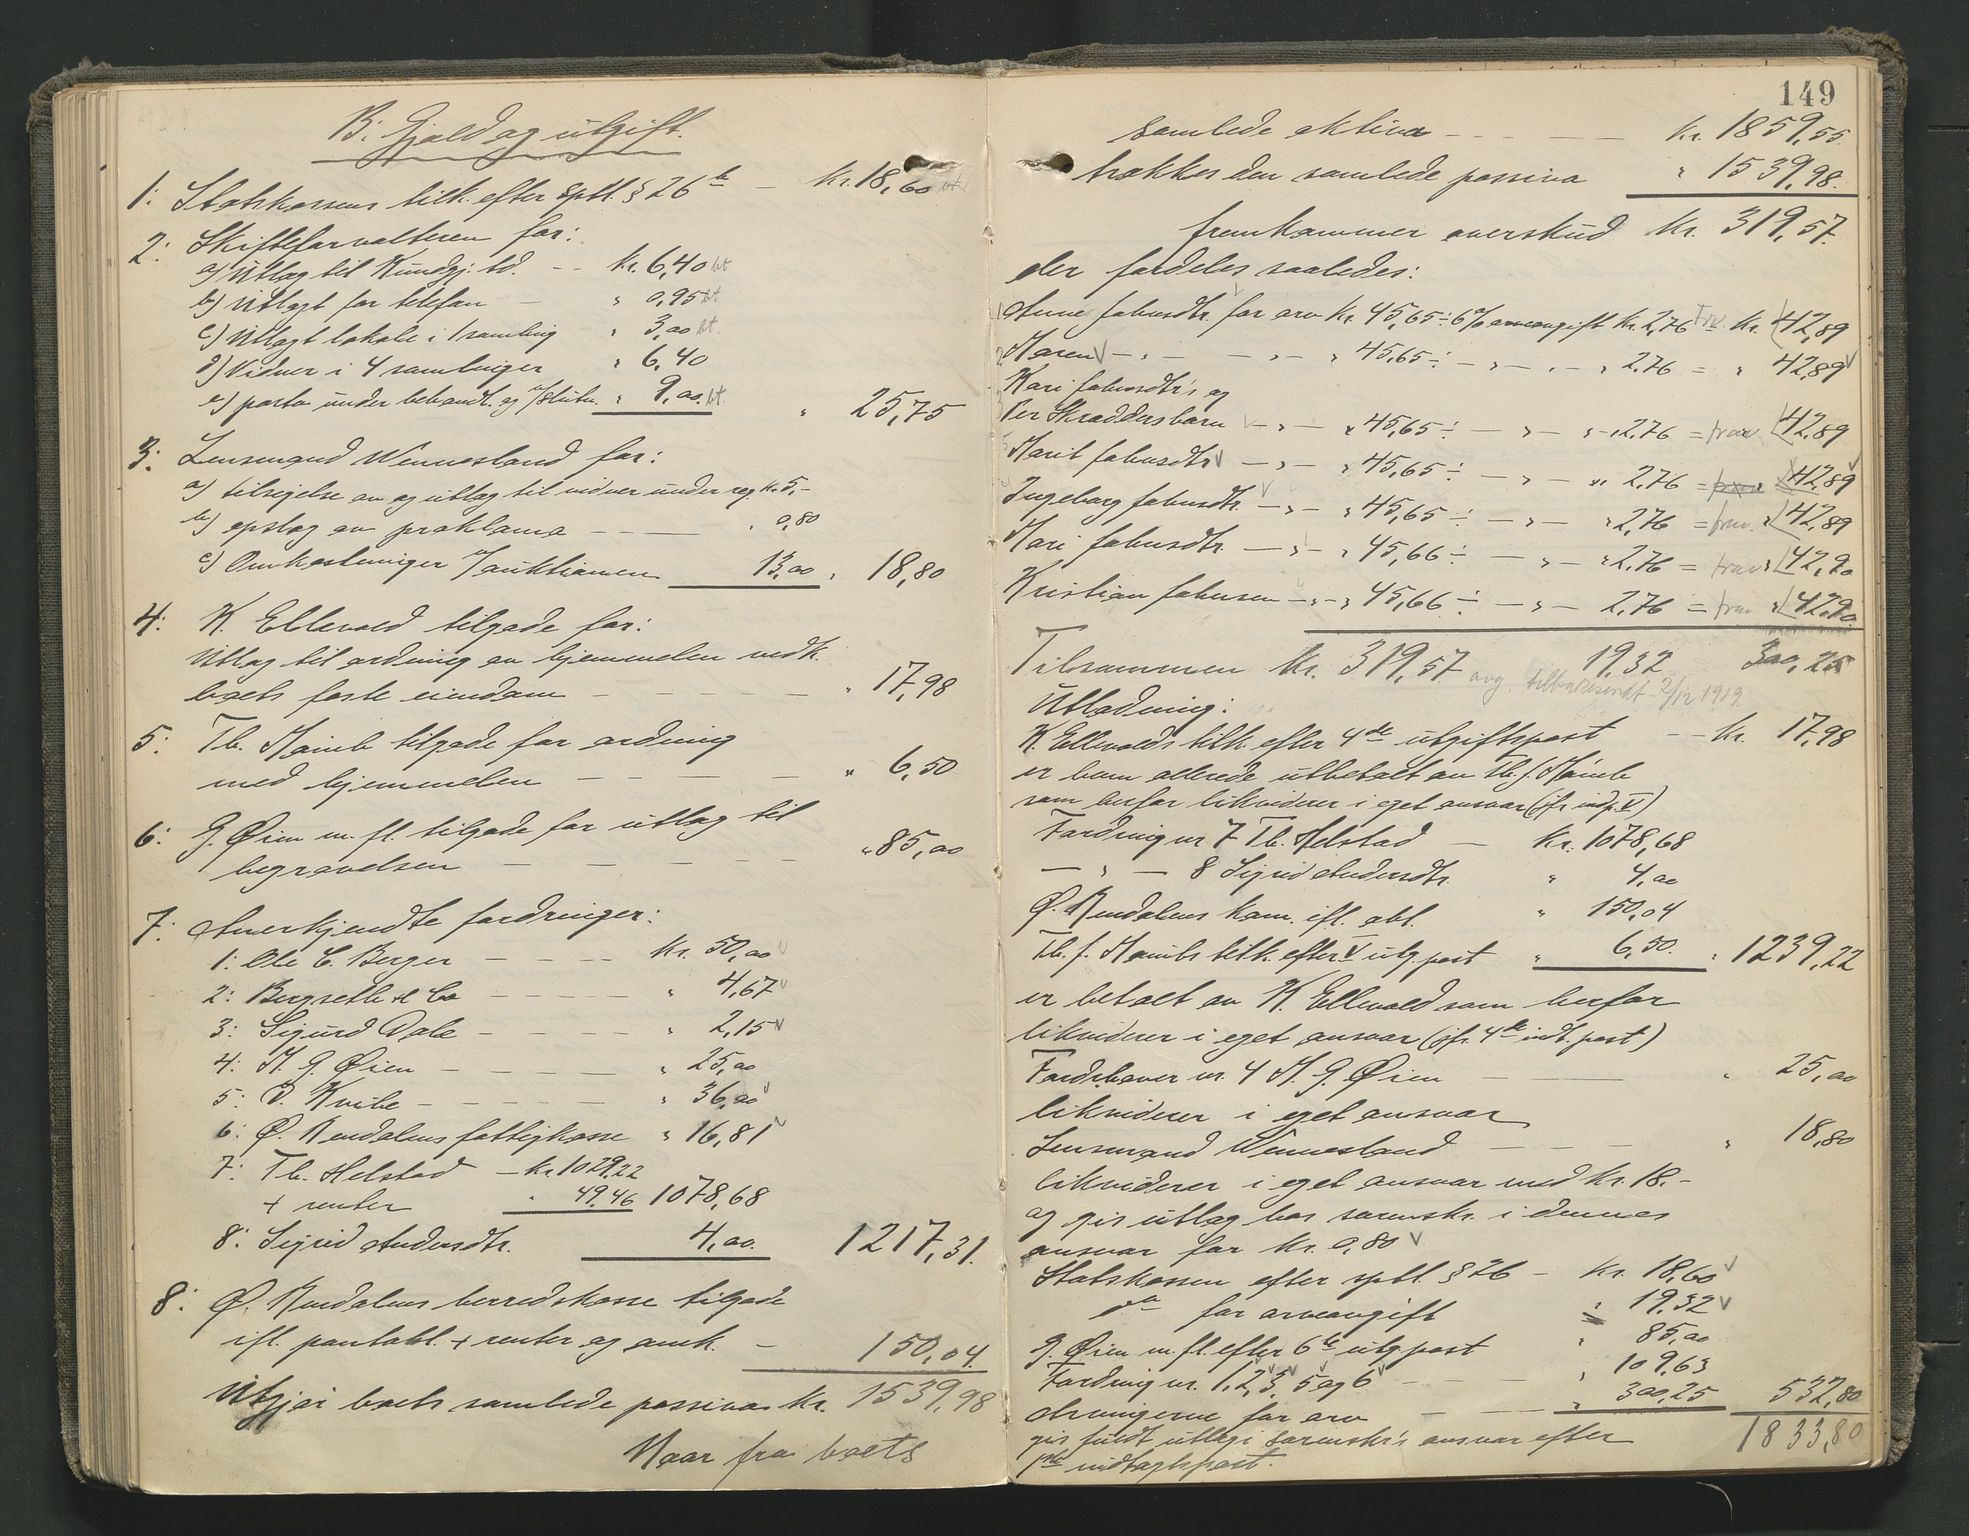 B: Gjæld og utgift.
1: Statskassens tilk. efter sptl. § 26 b — kr. 18,60 bt
2: Skifteforvalteren for:
a) Utlæg til Kundgj. td. -- kr. 6,40 bt
b) Utlagt for telefon — " 0,95 bt.
c) Utlagt lokale i 1 samling " 3,00 bt.
d) Vidner i 4 samlinger " 6,40
e) porto under behandl. og v/slutn. " 9,00 bt. " 25,75
3: Lensmand Wennesland for:
a) tilsigelse av og utlæg til vidner under reg. kr. 5,-
b) opslag av proklama — — — " 0,80
c) Omkostninger v/auktionen 13,00 " 18,80
4: K. Ellevold tilgode for:
Utlæg til ordning av hjemmelen vedk.
boets faste eiendom — — — " 17,98
5: Th. Haineb tilgode for ordning
med hjemmelen — — — — " 6,50
6: G. Øien m. fl. tilgode for utlæg til
begravelsen — — — — — " 85,00
7: Anerkjendte fordringer:
1: Ole C. Berger — — — — kr. 50,00 v
2: Bergseth & Co — — — — — " 4,67 v
3: Sigurd Dale — — — — — " 2,15 v
4: H. G. Øien — — — — — " 25,00
5: O. Kvibe — — — — — " 36,00 v
6: Ø. Rendalens fattigkasse " 16,81 v
7: Th. Helstad — kr. 1029,22
+ renter " 49,46 1078,68
8: Sigrid Andersdtr. 4,00. 1217,31.
8: Ø. Rendalens herredskasse tilgode
ifl. pantobl. + renter og omk. — 150,04.
Utgjør boets samlede passiva kr. 1539,98
Naar fra boets
149
samlede aktiva - - - — kr. 1859,55.
trækkes den samlede passiva " 1539,98.
fremkommer overskud kr. 319,57.
der fordeles saaledes:
Anne Johnsdtr. for arv kr. 45,65 ÷ 6% arveavgift kr. 2,76 frv. kr. 42,89
Maren v — " — — " — " 45,65 ÷ — " — " — " 2,76 = " 42,89 v
Kari Johnsdtr's og
Per Skræddersbarn v — " — " 45,65 ÷ — " — " — " 2,76 = frav. 42,89
Marit Johnsdtr v — " — " 45,65 ÷ — " — " 2,76 = frav 42,89 v
Ingeborg Johnsdtr. — " — " 45,65 ÷ — " — " 2,76 = frav. " 42,89
Mari Johnsdtr. — " — " 45,66 ÷ — " — " 2,76 = frav " 42,90
Kristian Johnsen — " — " 45,66 ÷ — " — 2,76 = frav " 42,90.
Tilsammen kr. 319,57 19,32 300,25
avg. tilbakesendt 2/12 1919
Utlodning:
K. Ellevolds tilk. efter 4de utgiftspost - - kr. 17,98
er ham allerede utbetalt av Th. J. Haineb
som herfor likviderer i eget ansvar (jfr. indp. V)
Fordring nr. 7 Th. Helstad — kr. 1078,68
— " — 8 Sigrid Andersdtr. " 4,00
Ø. Rendalens kom. ifl. obl. " 150,04
Th. J. Hainebs tilk. efter V utg. post " 6,50. " 1239,22
er betalt av K. Ellevold som herfor
likviderer i eget ansvar (jfr. 4de indt. post)
Fordr.haver nr. 4 H. G. Øien — — " 25,00
likviderer i eget ansvar
Lensmand Wennesland — — — " 18,80
likviderer i eget ansvar med kr. 18.-
og gis utlæg hos sorenskr. i dennes
ansvar for kr. 0,80 v
Statskassen efter sptl. § 26 — kr. 18,60 v
do for arveavgift " 19,32 v
G. Øien m. fl. efter 6te utg. post " 85,00
Fordring nr. 1, 2, 3, 5 og 6 — — — " 109,63
Arvingerne for arv — — " 300,25 532,80
gis fuldt utlæg i sorenskr's ansvar efter 1833,80
1ste indtægtspost.